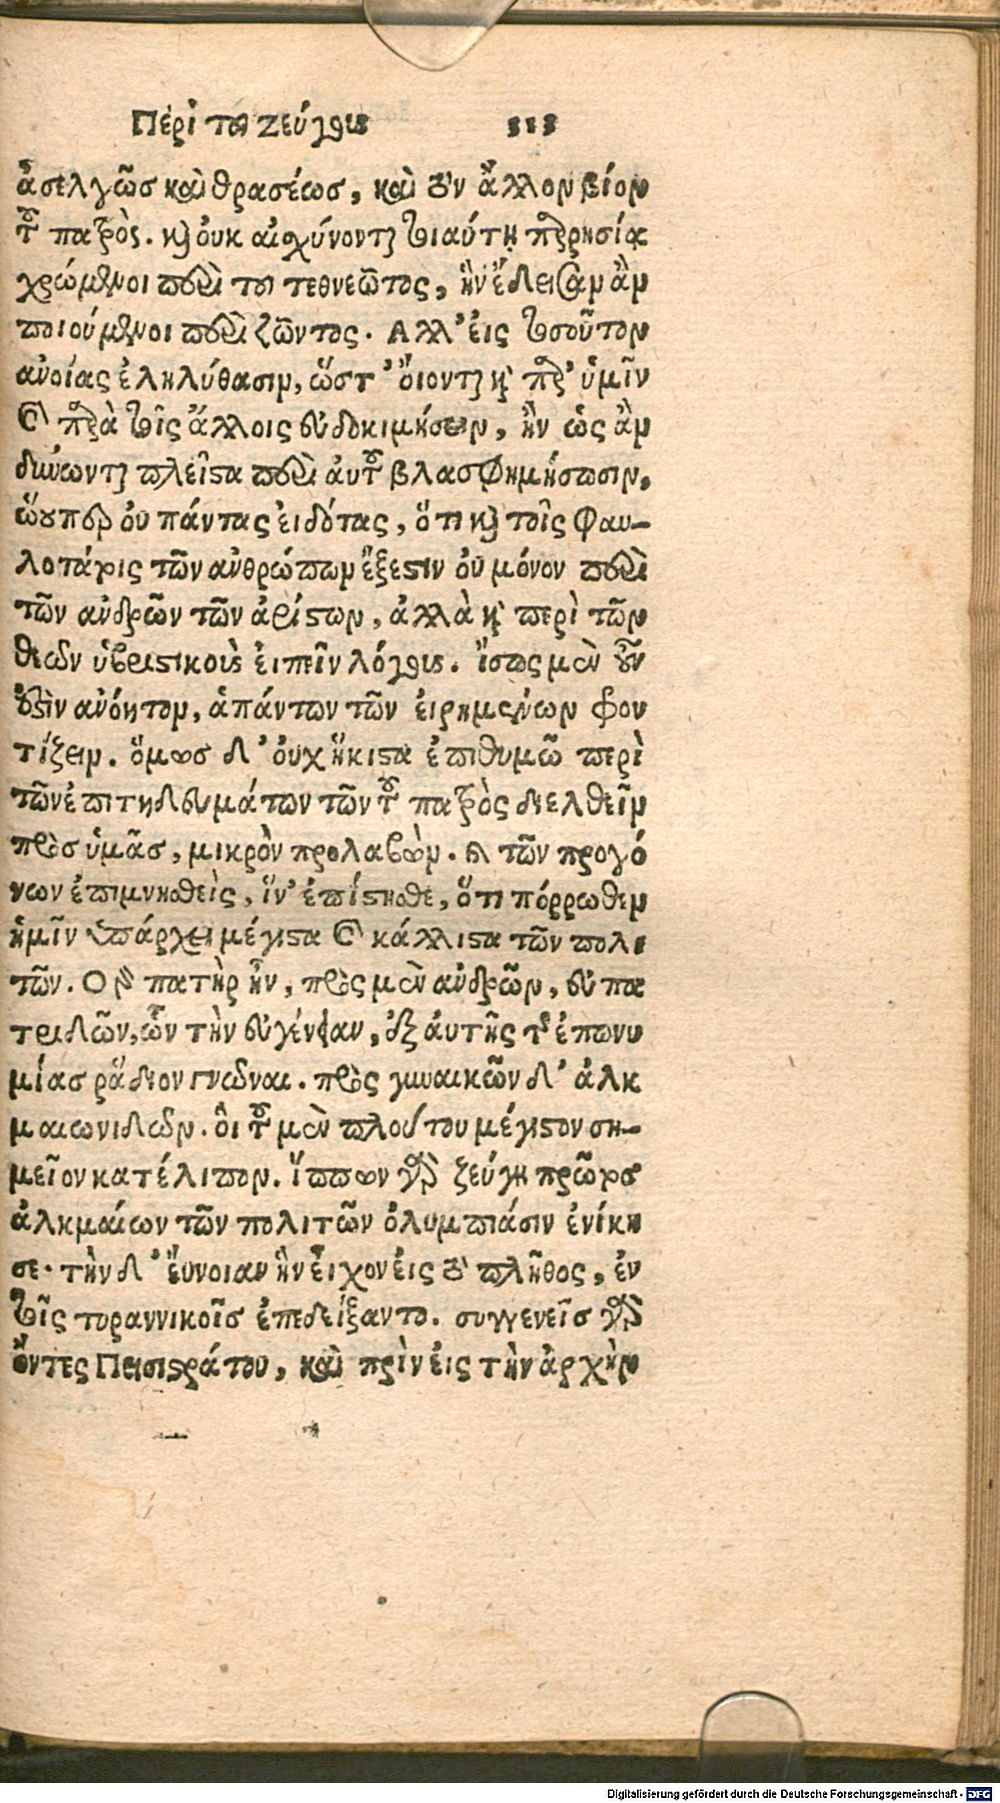 Περὶ τοῦ Ζεύγους 313
ἀσελγῶς καὶ θρασέως, καὶ τὸν ἄλλον βίον
τοῦ πατρὸς. καὶ οὐκ αἰσχύνονται τοιαύτῃ παρρησίᾳ
χρώμενοι περὶ τοῦ τεθνεῶτος, ἣν ἔδεισαν ἂν
ποιούμενοι περὶ ζῶντος. Αλλ' εἰς τοσοῦτον
ἀνοίας ἐληλύθασιν, ὥστ' οἴονται καὶ παρ' ὑμῖν
καὶ παρὰ τοῖς ἄλλοις εὐδοκιμήσειν, ἢν ὡς ἂν
δύνωνται πλεῖστα περὶ αὐτοῦ βλασφημήσωσιν,
ὥσπερ οὐ πάντας εἰδότας, ὅτι καὶ τοῖς φαυ-
λοτάτοις τῶν ἀνθρώπων ἔξεστιν οὐ μόνον περὶ
τῶν ἀνδρῶν τῶν ἀρίστων, ἀλλὰ καὶ περὶ τῶν
θεῶν ὑβριστικοὺς εἰπεῖν λόγους. ἴσως μὲν οὖν
οὖν ἀνόητον, ἁπάντων τῶν εἰρημένων φρον
τίζειν. ὅμως δ' οὐχ ἥκιστα ἐπιθυμῶ περὶ
τῶν ἐπιτηδευμάτων τῶν τοῦ πατρὸς διελθεῖν
πρὸς ὑμᾶς, μικρὸν προλαβὼν. καὶ τῶν προγό
νων ἐπιμνησθεὶς, ἵν' ἐπίστησθε, ὅτι πόρρωθεν
ἡμῖν ὑπάρχει μέγιστα καὶ κάλλιστα τῶν πολι
τῶν. Ο γὰρ πατὴρ ἦν, πρὸς μὲν ἀνδρῶν, εὐπα
τριδῶν, ὧν τὴν εὐγένειαν, ἐξ αὐτῆς τῆς ἐπωνυ
μίας ῥᾴδιον γνῶναι. πρὸς γυναικῶν δ' ἀλκ
μαιωνιδῶν. οἳ τοῦ μὲν πλούτου μέγιστον ση-
μεῖον κατέλιπον. ἵππων γὰρ ζεύγει πρῶτος
ἀλκμαίων τῶν πολιτῶν ὀλυμπιάσιν ἐνίκη
σε. τὴν δ' εὔνοιαν ἣν εἶχον εἰς τὸ πλῆθος, ἐν
τοῖς τυραννικοῖς ἐπεδείξαντο. συγγενεῖς γὰρ
ὄντες Πεισιστράτου, καὶ πρὶν εἰς τὴν ἀρχὴν
Digitalisierung gefördert durch die Deutsche Forschungsgemeinschaft - DFG